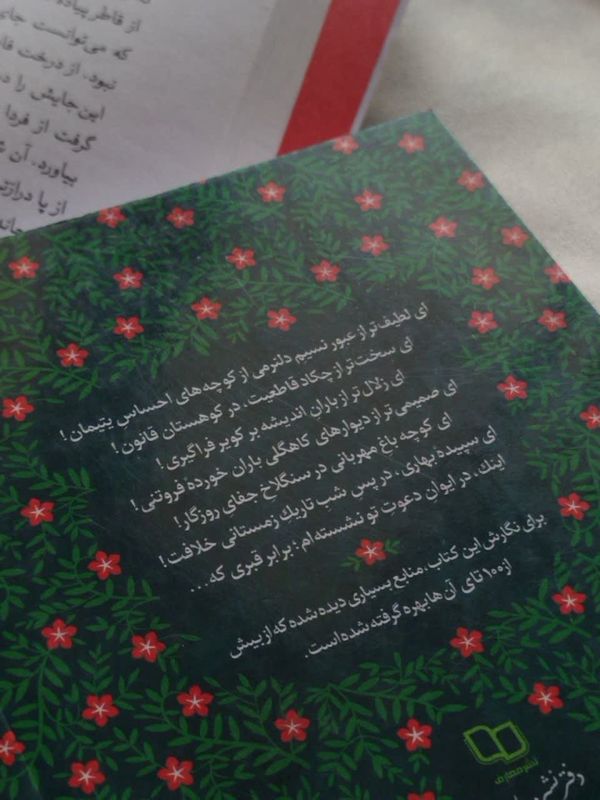 از قاطر پیاده
که می‌توانست جای
نبود. از درخت
این‌جایش را
گرفت از فردا
بیاورد. آن
از پا درازتر
ای لطیف‌تر از عبور نسیم دلنرمی از کوچه‌های احساسِ یتیمان!
ای سخت‌تر از چکاد قاطعیت، در کوهستان قانون!
ای زلال‌تر از باران اندیشه بر کویر فراگیری!
ای صمیمی‌تر از دیوارهای کاهگلی باران خورده فروتنی!
ای کوچه باغ مهربانی در سنگلاخ جفای روزگار!
ای سپیده بهاری، در پس شب تاریك زمستانی خلافت!
اینك، در ایوان دعوت تو نشسته‌ام؛ برابر قبری که...
برای نگارش این کتاب، منابع بسیاری دیده شده که از بیش
از ۱۰۰ تای آن‌ها بهره گرفته شده است.
نشر معارف
دفتر نشر